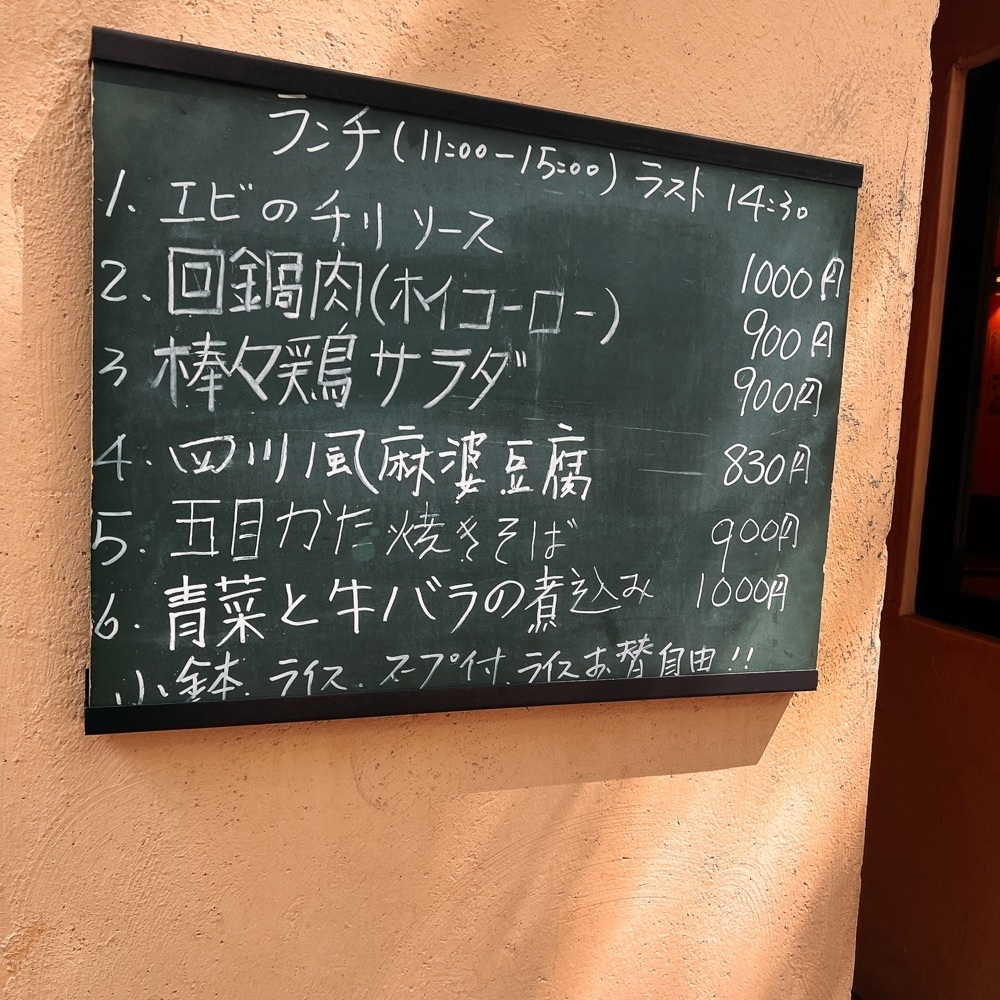 ランチ(11:00-15:00) ラスト 14:30
1. エビのチリソース 1000円
2. 回鍋肉(ホイコーロー) 900円
3 棒々鶏サラダ 900円
4. 四川風麻婆豆腐 830円
5. 五目かた焼きそば 900円
6. 青菜と牛バラの煮込み 1000円
小鉢.ライス.スープ付.ライスお替自由!!